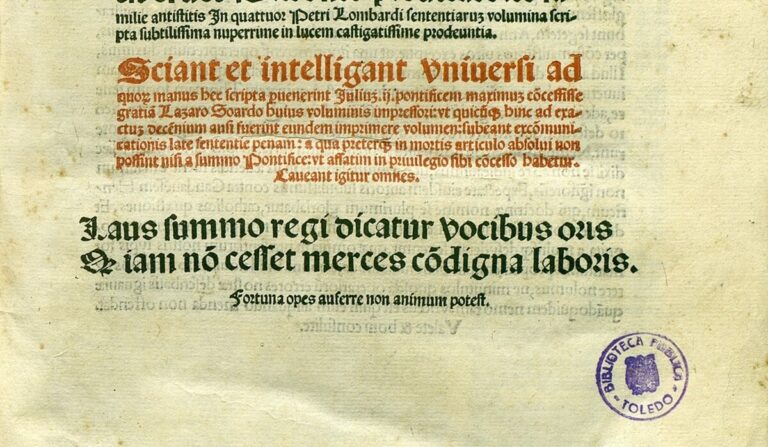 milie antistitis In quattuor Petri Lombardi sententiarū volumina scri
pta subtilissima nuperrime in lucem castigatissime prodeuntia.
Sciant et intelligant vniuersi ad
quoꝝ manus hec scripta puenerint Julius .ij. pontificem maximus cōcessisse
gratiā Lazaro Soardo huius voluminis impressori: vt quicūqꝫ hinc ad exa
ctus decēnium ausi fuerint eundem imprimere volumen: subeant excōmuni
cationis late sententie penam: a qua preterqꝫ in mortis articulo absolui non
possint nisi a summo Pontifice: vt affatim in priuilegio sibi cōcesso habetur.
Caueant igitur omnes.
Laus summo regi dicatur vocibus oris
Q iam nō cesset merces cōdigna laboris.
Fortuna opes auferre non animum potest.
BIBLIOTECA PUBLICA
TOLEDO